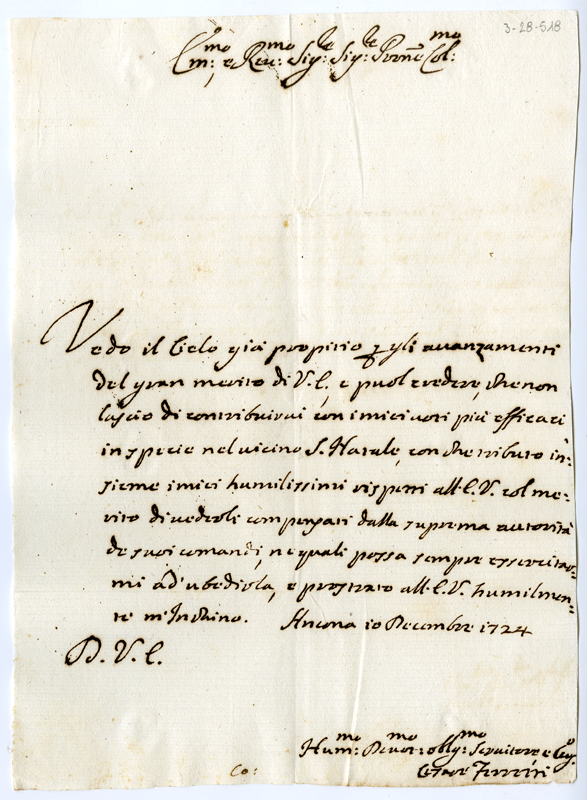 3-28-518
Em:mo e Reu:mo Sig:re Sig:re Prõne Col:mo
Vedo il Cielo già propitio p gli auanzamenti
del gran merito di V. E., e puol credere, che non
lascio di contribuirui con i miei uoti più efficaci
in specie nel uicino S. Natale, con che tributo in-
sieme i miei humilissimi rispetti all'E. V. col me-
rito di uederli compensati dalla suprema autorità
de suoi comandi, ne quali possa sempre essercitar-
mi ad ubedirla, e prostrato all'E. V. humilmen-
te m'Inchino. Ancona 10 Decembre 1724
D. V. E.
Hum:mo Deuot:mo oblg:mo Seruitore e
Co: Cesare